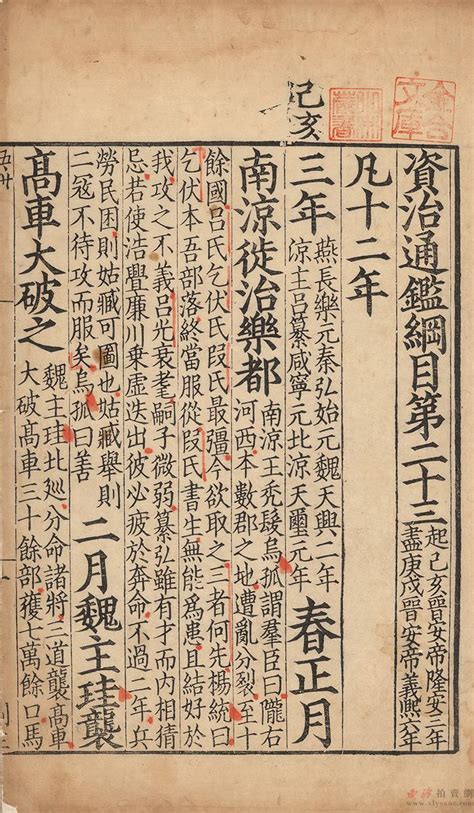 己亥
資治通鑑綱目第二十三
起己亥晉安帝隆安三年
盡庚戌晉安帝義熙六年
凡十二年
三年
燕長樂元秦弘始元魏天興二年
涼主呂纂咸寧元北涼天璽元年
春正月
南涼徙治樂都
南涼王禿髮烏孤謂羣臣曰隴右
河西本數郡之地遭亂分裂至十
餘國呂氏乞伏氏段氏最彊今欲取之三者何先楊統曰
乞伏本吾部落終當服從段氏書生無能爲患且結好於
我攻之不義呂光衰耄嗣子微弱纂弘雖有才而內相猜
忌若使浩亹廉川乗虛迭出彼必疲於奔命不過二年兵
勞民困則姑臧可圖也姑臧舉則
二寇不待攻而服矣烏孤曰善
二月魏主珪襲
高車大破之
魏主珪北廵分命諸將三道襲高車
大破高車三十餘部獲七萬餘口馬
西泠拍賣網
www.xlysauc.com